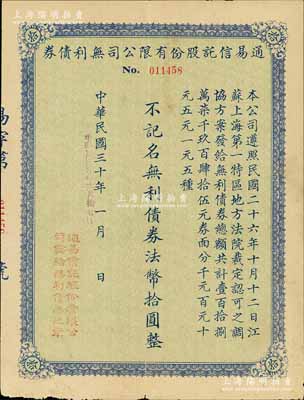 上海陽明拍賣
通易信託股份有限公司無利債券
No. 011458
本公司遵照民國二十六年十月十二日江
蘇上海第一特區地方法院裁定認可之調
協方案發給無利債券總額共計壹百拾捌
萬柒千玖百肆拾伍元券面分千元百元十
元五元一元五種
不記名無利債券法幣拾圓整
中華民國三十年一月 日
通易信託股份有限公
上海陽明拍賣